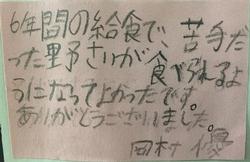 6年間の給食で、苦手だ
った野さいが食べれるよ
うになってよかったです。
ありがとうございました。
岡村 優